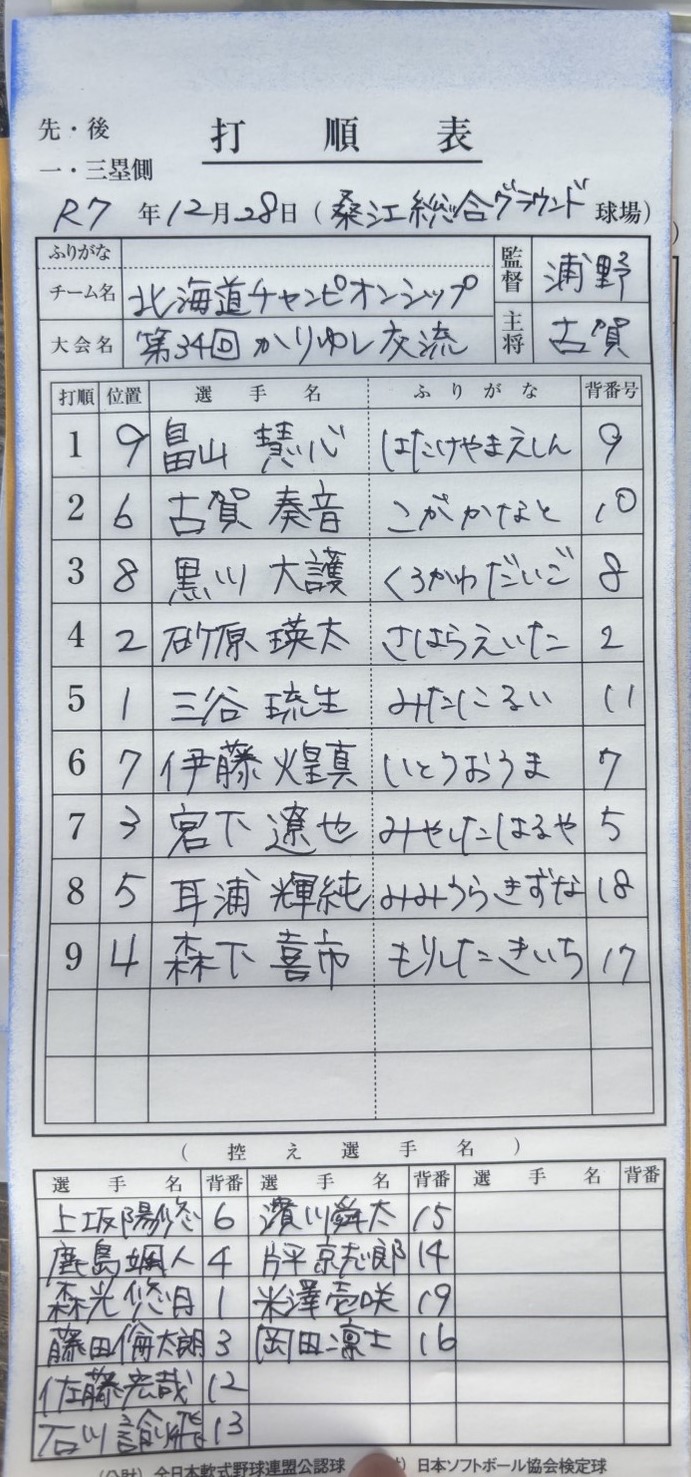 先・後 打順表
一・三塁側
R7年12月28日(桑江総合グラウンド球場)
ふりがな
チーム名 北海道チャンピオンシップ 監督 浦野
大会名 第34回かりゆし交流 主将 古賀
打順 位置 選手名 ふりがな 背番号
1 9 畠山 慧心 はたけやまえしん 9
2 6 古賀 奏音 こがかなと 10
3 8 黒川 大護 くろかわだいご 8
4 2 砂原 瑛太 さはらえいた 2
5 1 三谷 琉生 みたにるい 11
6 7 伊藤 煌真 いとうおうま 7
7 3 宮下 遼也 みやしたはるや 5
8 5 耳浦 輝純 みみうらきずな 18
9 4 森下 喜市 もりしたきいち 17
(控え選手名)
選手名 背番 選手名 背番 選手名 背番
上坂陽悠 6 濱川舜太 15
鹿島颯人 4 片平京志郎 14
森光悠月 1 米澤壱咲 19
藤田倫太朗 3 岡田凛士 16
佐藤宏哉 12
石川諭飛 13
(公財)全日本軟式野球連盟公認球 日本ソフトボール協会検定球